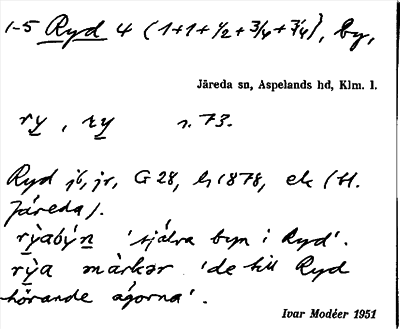 1-5 Ryd 4 (1+1+1/2+3/4+3/4), by,
Järeda sn, Aspelands hd, Klm. l.
ry , ry s. 73.
Ryd jb, jr, G 28, h 1878, ek (H.
Järeda).
rỳabýn 'själva byn i Ryd'.
rỳa màrkər 'de till Ryd
hörande ägorna'.
Ivar Modéer 1951